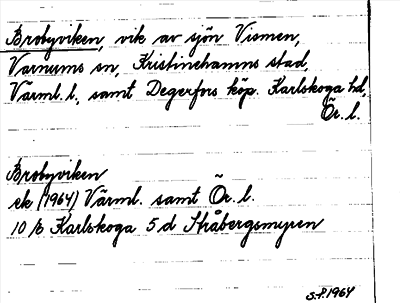 Brobyviken, vik av sjön Vismen,
Varnums sn, Kristinehamns stad,
Värml. l., samt Degerfors köp. Karlskoga hd,
Ör. l.
Brobyviken
ek (1964) Värml. samt Ör. l.
10 E Karlskoga 5 d Stråbergsmyren
S.P. 1964